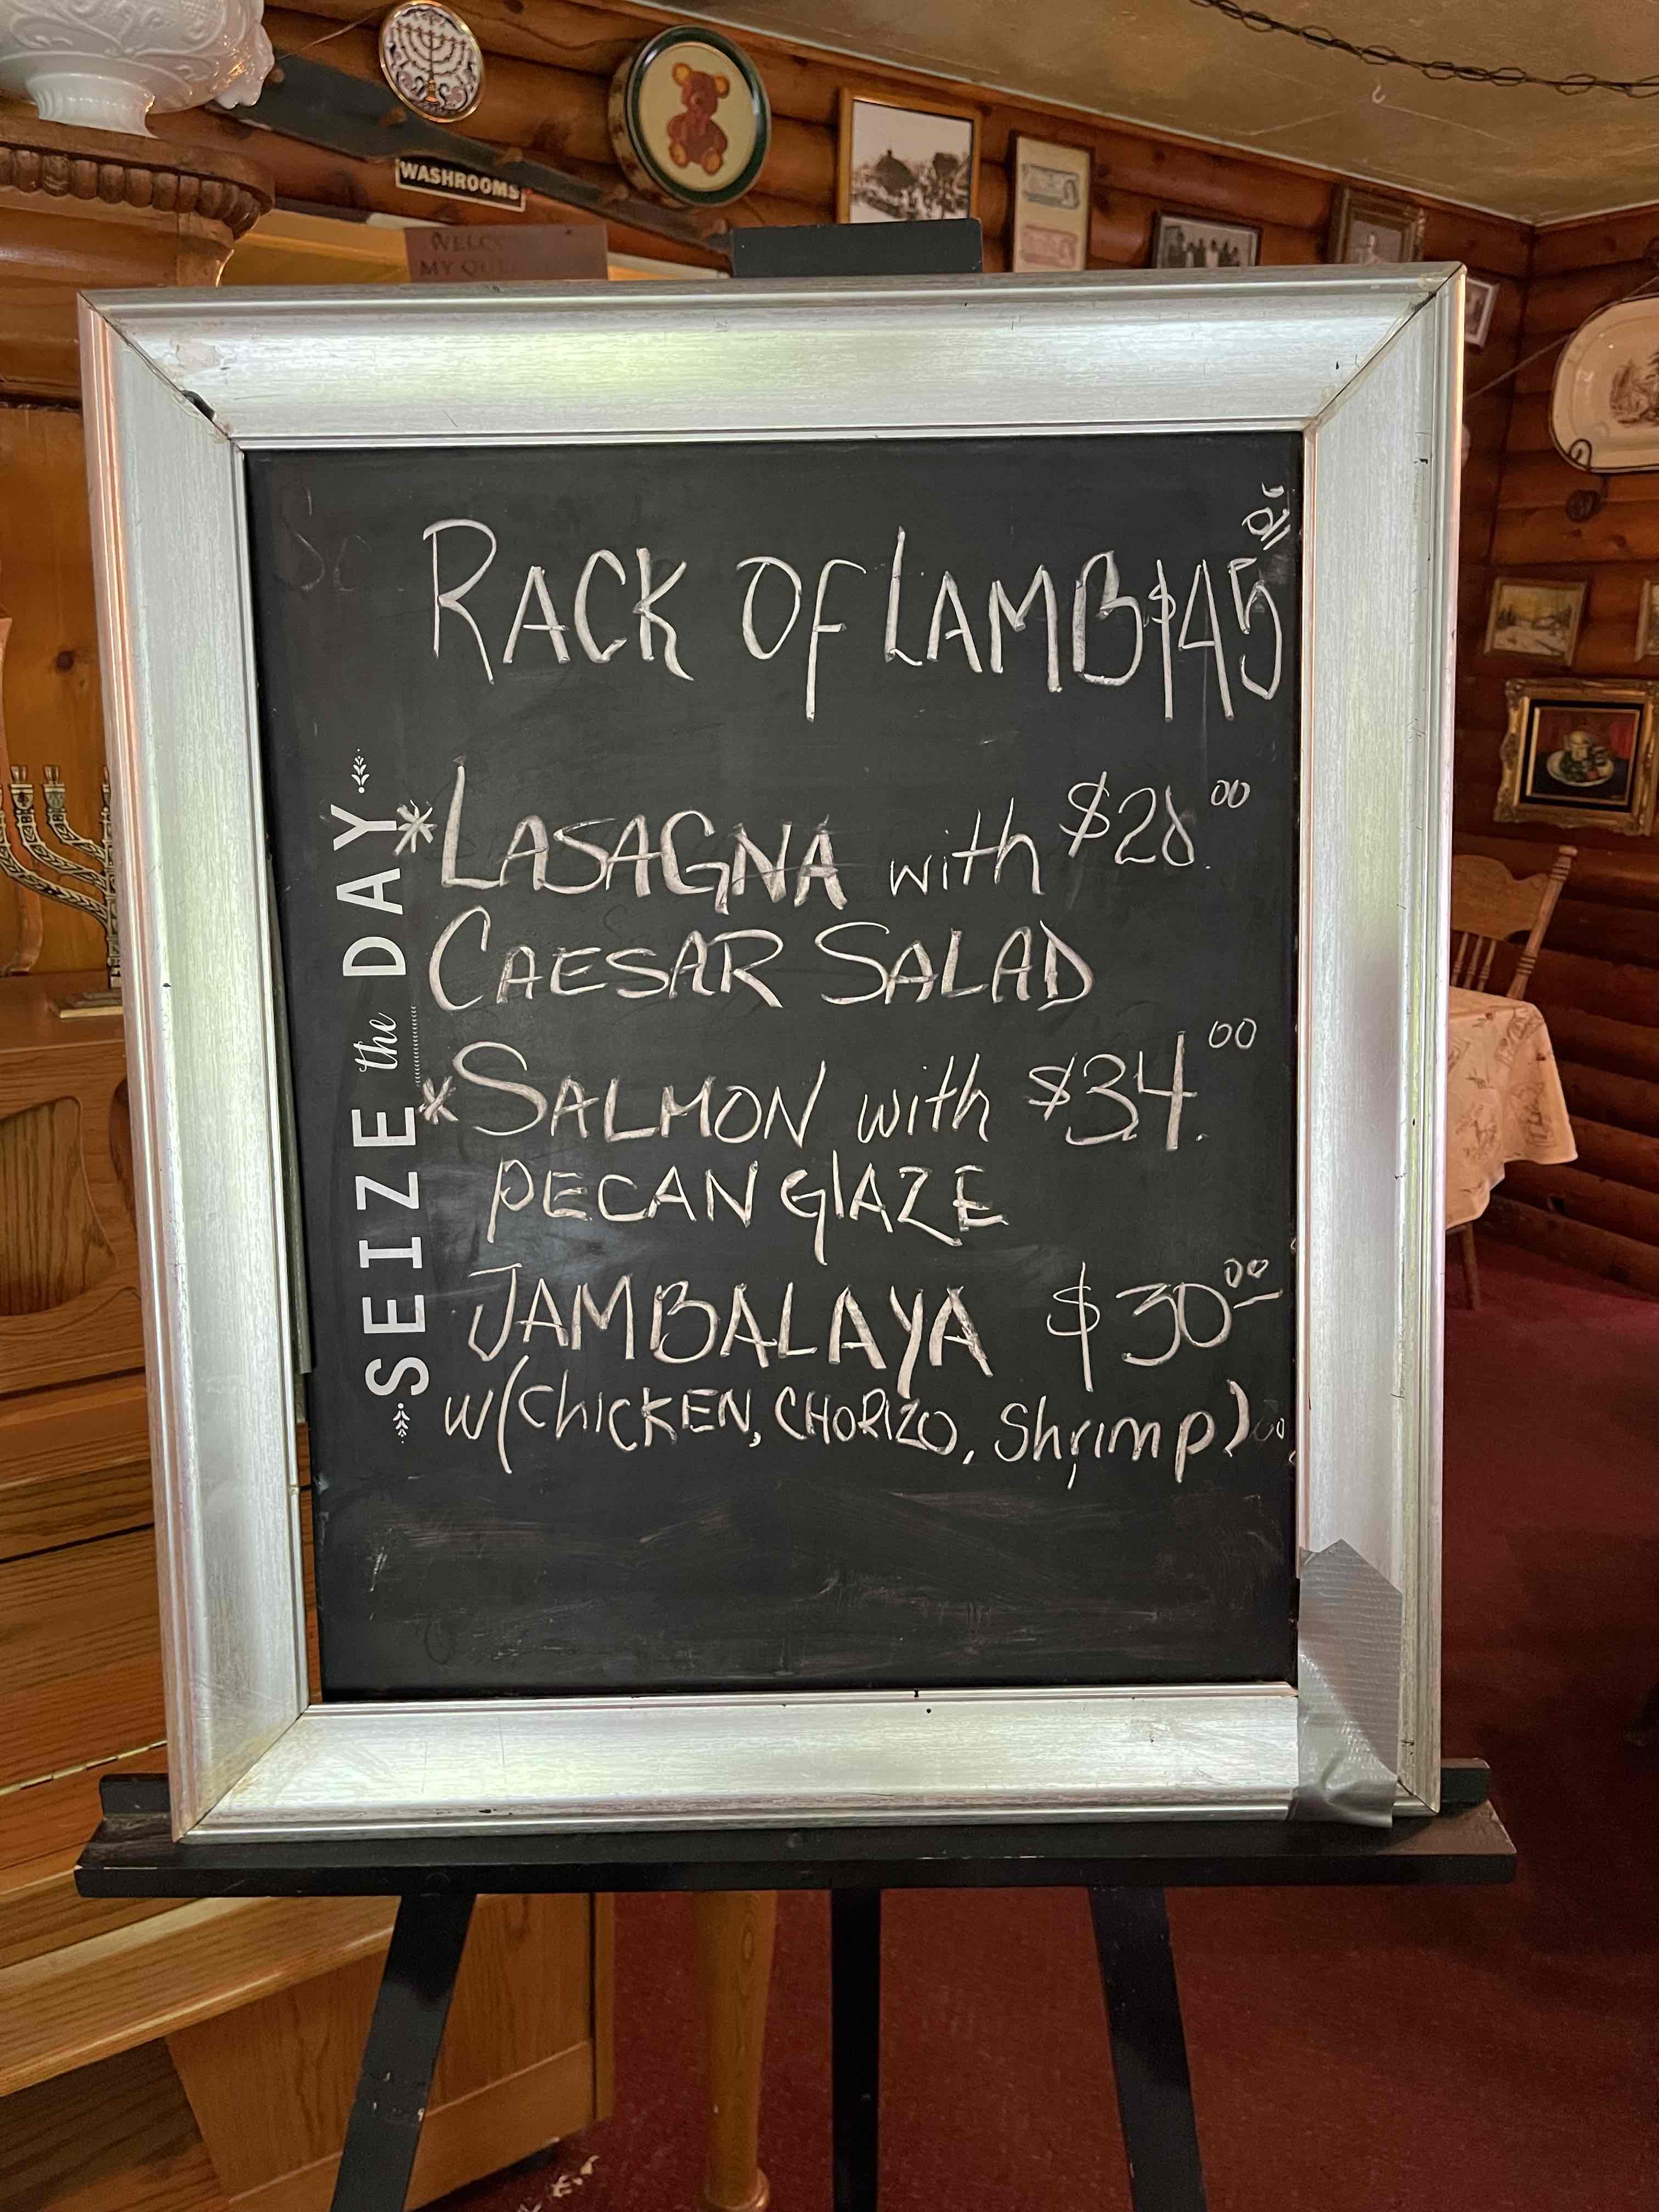 WASHROOMS
MY
RACK OF LAMB $45 00
*LASAGNA with $28 00
CAESAR SALAD
*SALMON with $34. 00
PECAN GlAZE
JAMBALAYA $30 00
w/(ChICKEN, CHORIZO, Shrimp)
SEIZE the DAY